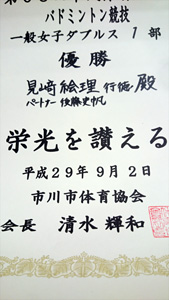 バドミントン競技
一般女子ダブルス 1 部
優勝
見﨑絵理 行徳 殿
パートナー 後藤史帆
栄光を讃える
平成29年9月2日
市川市体育協会
会長 清水輝和